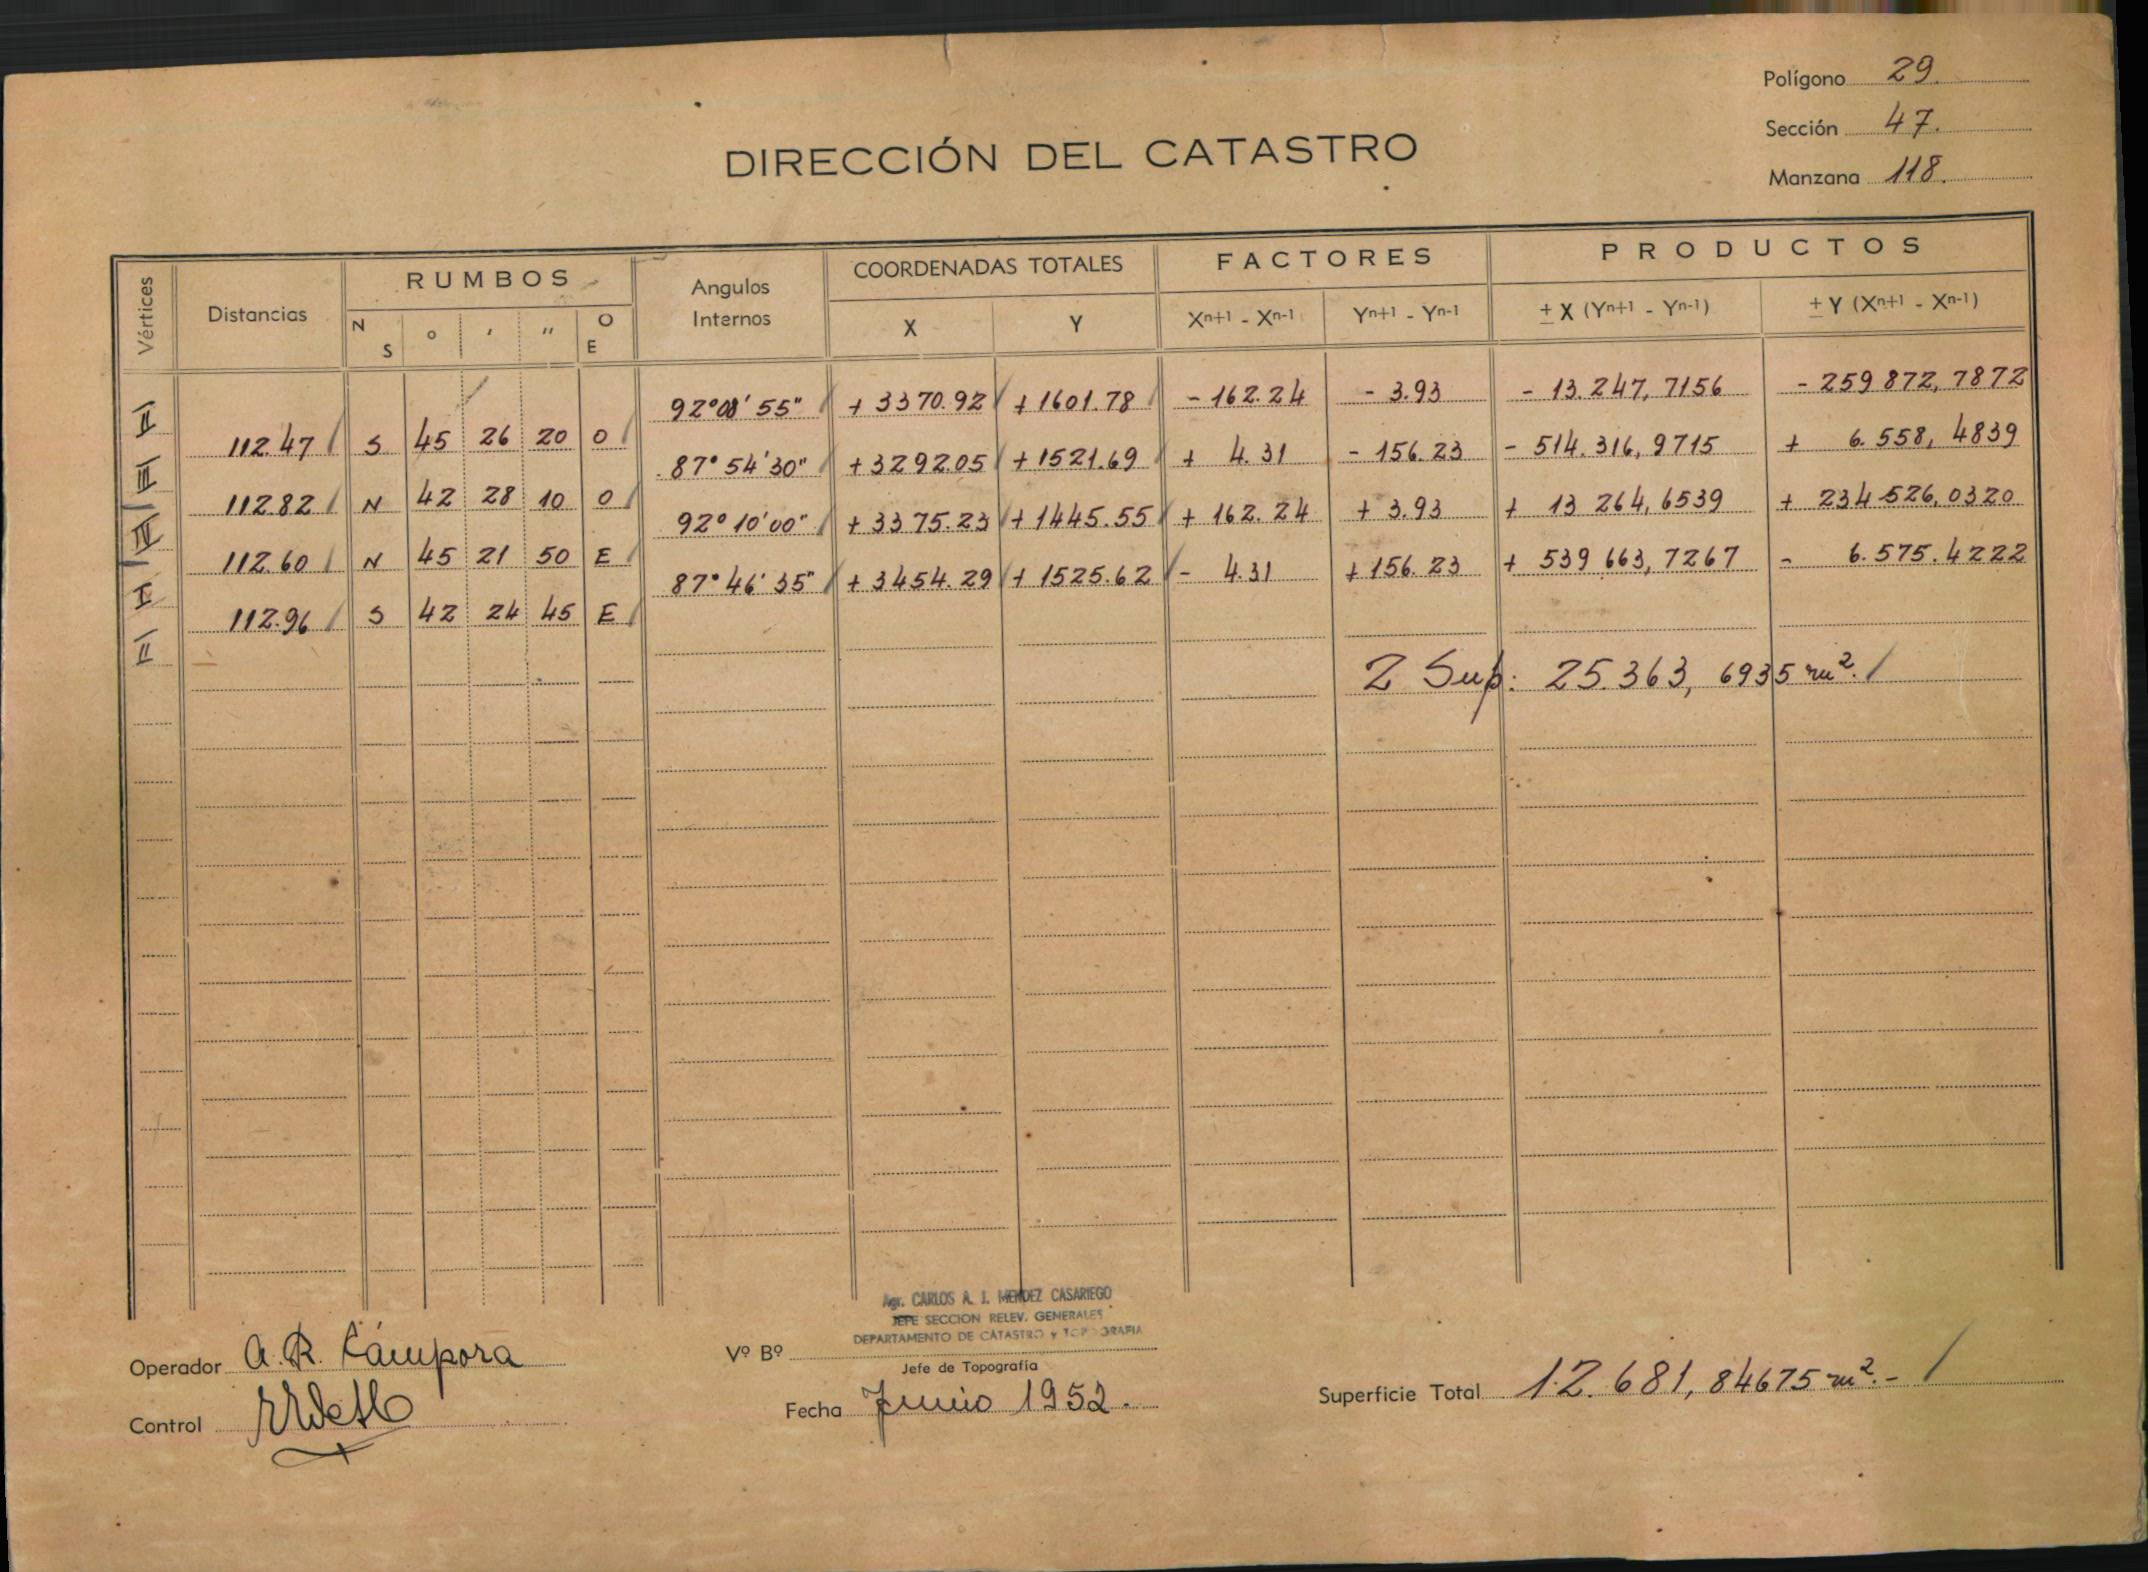 Polígono 29.
Sección 47.
Manzana 118.
DIRECCIÓN DEL CATASTRO
Vértices Distancias RUMBOS Angulos Internos COORDENADAS TOTALES FACTORES PRODUCTOS
N S o ' '' O E X Y Xn+1 - Xn-1 Yn+1 - Yn-1 ± X (Yn+1 - Yn-1) ± Y (Xn+1 - Xn-1)
II 92°08'55" + 3370.92 + 1601.78 - 162.24 - 3.93 - 13.247,7156 - 259 872,7872
112.47 S 45 26 20 O
III 87°54'30" + 3292.05 + 1521.69 + 4.31 - 156.23 - 514.316,9715 + 6.558,4839
112.82 N 42 28 10 O
IV 92°10'00" + 3375.23 + 1445.55 + 162.24 + 3.93 + 13 264,6539 + 234 526,0320
112.60 N 45 21 50 E
I 87°46'35" + 3454.29 + 1525.62 - 4.31 + 156.23 + 539 663,7267 - 6.575.4222
112.96 S 42 24 45 E
II
2 Sup: 25.363,6935 m².
Agr. CARLOS A. J. MENDEZ CASARIEGO
JEFE SECCION RELEV. GENERALES
DEPARTAMENTO DE CATASTRO y TOPOGRAFIA
Operador A. R. Cámpora
Vº Bº
Jefe de Topografía
Control
Fecha Junio 1952.
Superficie Total 12.681,84675 m².-